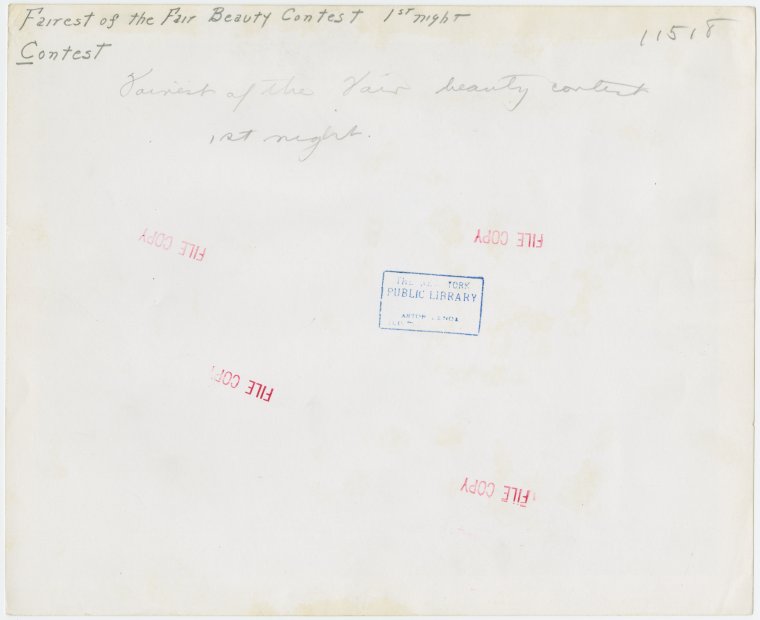 Fairest of the Fair Beauty Contest 1st night
11518
Contest
Fairest of the Fair beauty contest
1st night.
FILE COPY
FILE COPY
THE NEW YORK
PUBLIC LIBRARY
ASTOR LENOX
FILE COPY
FILE COPY